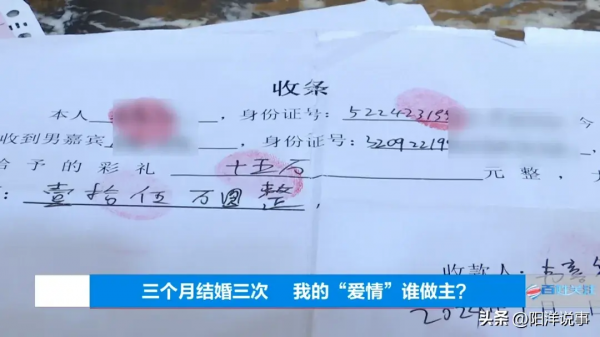 收条
本人 ，身份证号：522423199 今
收到男嘉宾 ，身份证号：320922199
给予的彩礼 十五万 元整，大
：壹拾伍万圆整，
收款人：
三个月结婚三次 我的“爱情”谁做主？
头条 @阳洋说事